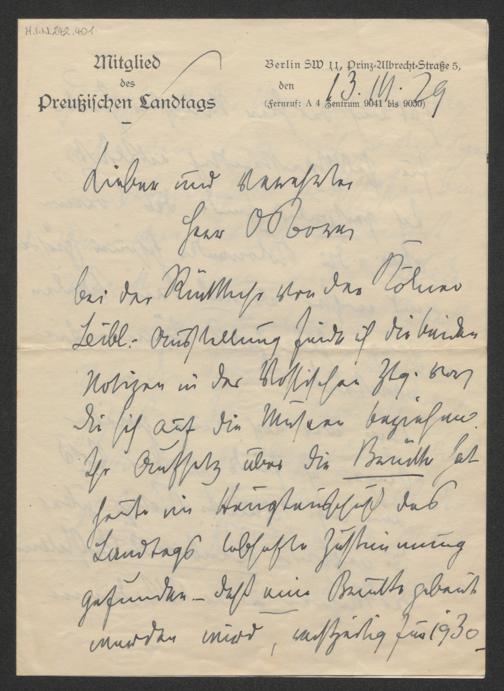 H.I.N. 242.401
Mitglied
des
Preußischen Landtags
Berlin SW 11, Prinz-Albrecht-Straße 5,
den 13. III. 29
(Fernruf: A 4 Zentrum 9041 bis 9050)
Lieber und verehrter
Herr Osborn,
bei der Rückkehr von der Kölner
Leibl-Ausstellung finde ich die beiden
Notizen in der Vossischen Ztg. vor,
die sich auf die Museen beziehen.
Ihr Aufsatz über die Brücke hat
heute im Hauptausschuß des
Landtags lebhafte Zustimmung
gefunden – daß eine Brücke gebaut
werden wird, rechtzeitig für 1930